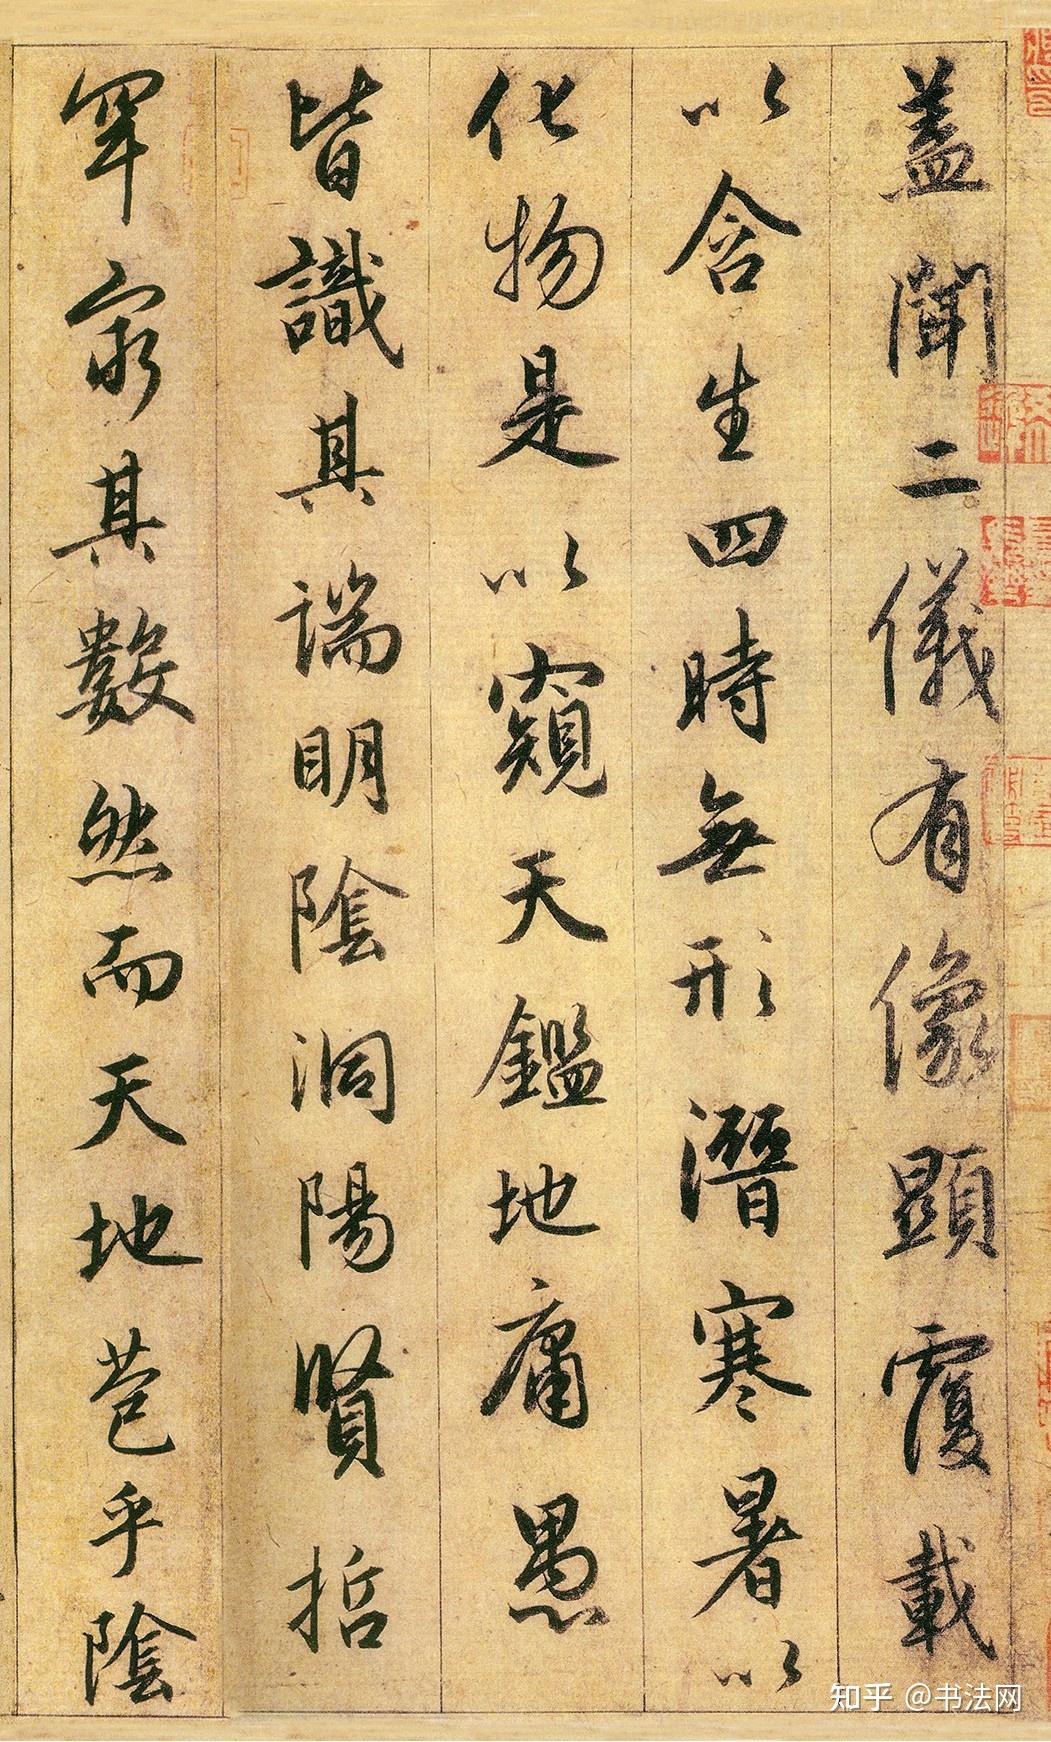 蓋聞二儀有像顯覆載
以含生四時無形潛寒暑以
化物是以窺天鑑地庸愚
皆識其端明陰洞陽賢哲
罕窮其數然而天地苞乎陰
知乎 @书法网